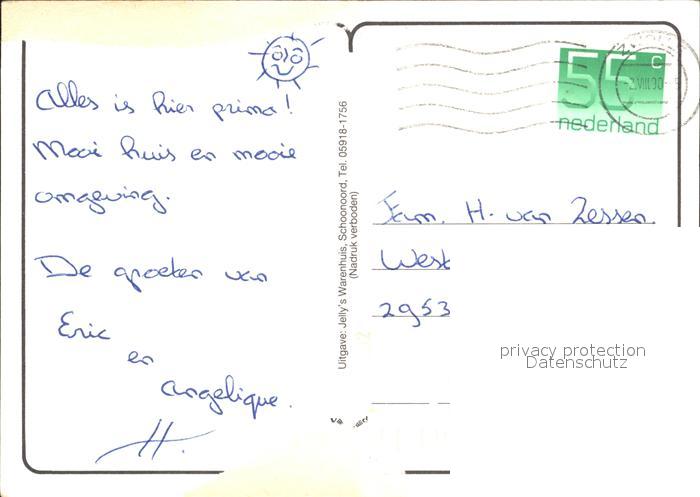 Alles is hier prima!
Mooi huis en mooie
omgeving.
De groeten van
Eric
en
Angelique.
H.
Uitgave: Jelly's Warenhuis, Schoonoord, Tel. 05918-1756
(Nadruk verboden)
55 c
nederland
-2.VIII.90-
Fam. H. van Zessen.
West
2953
privacy protection
Datenschutz